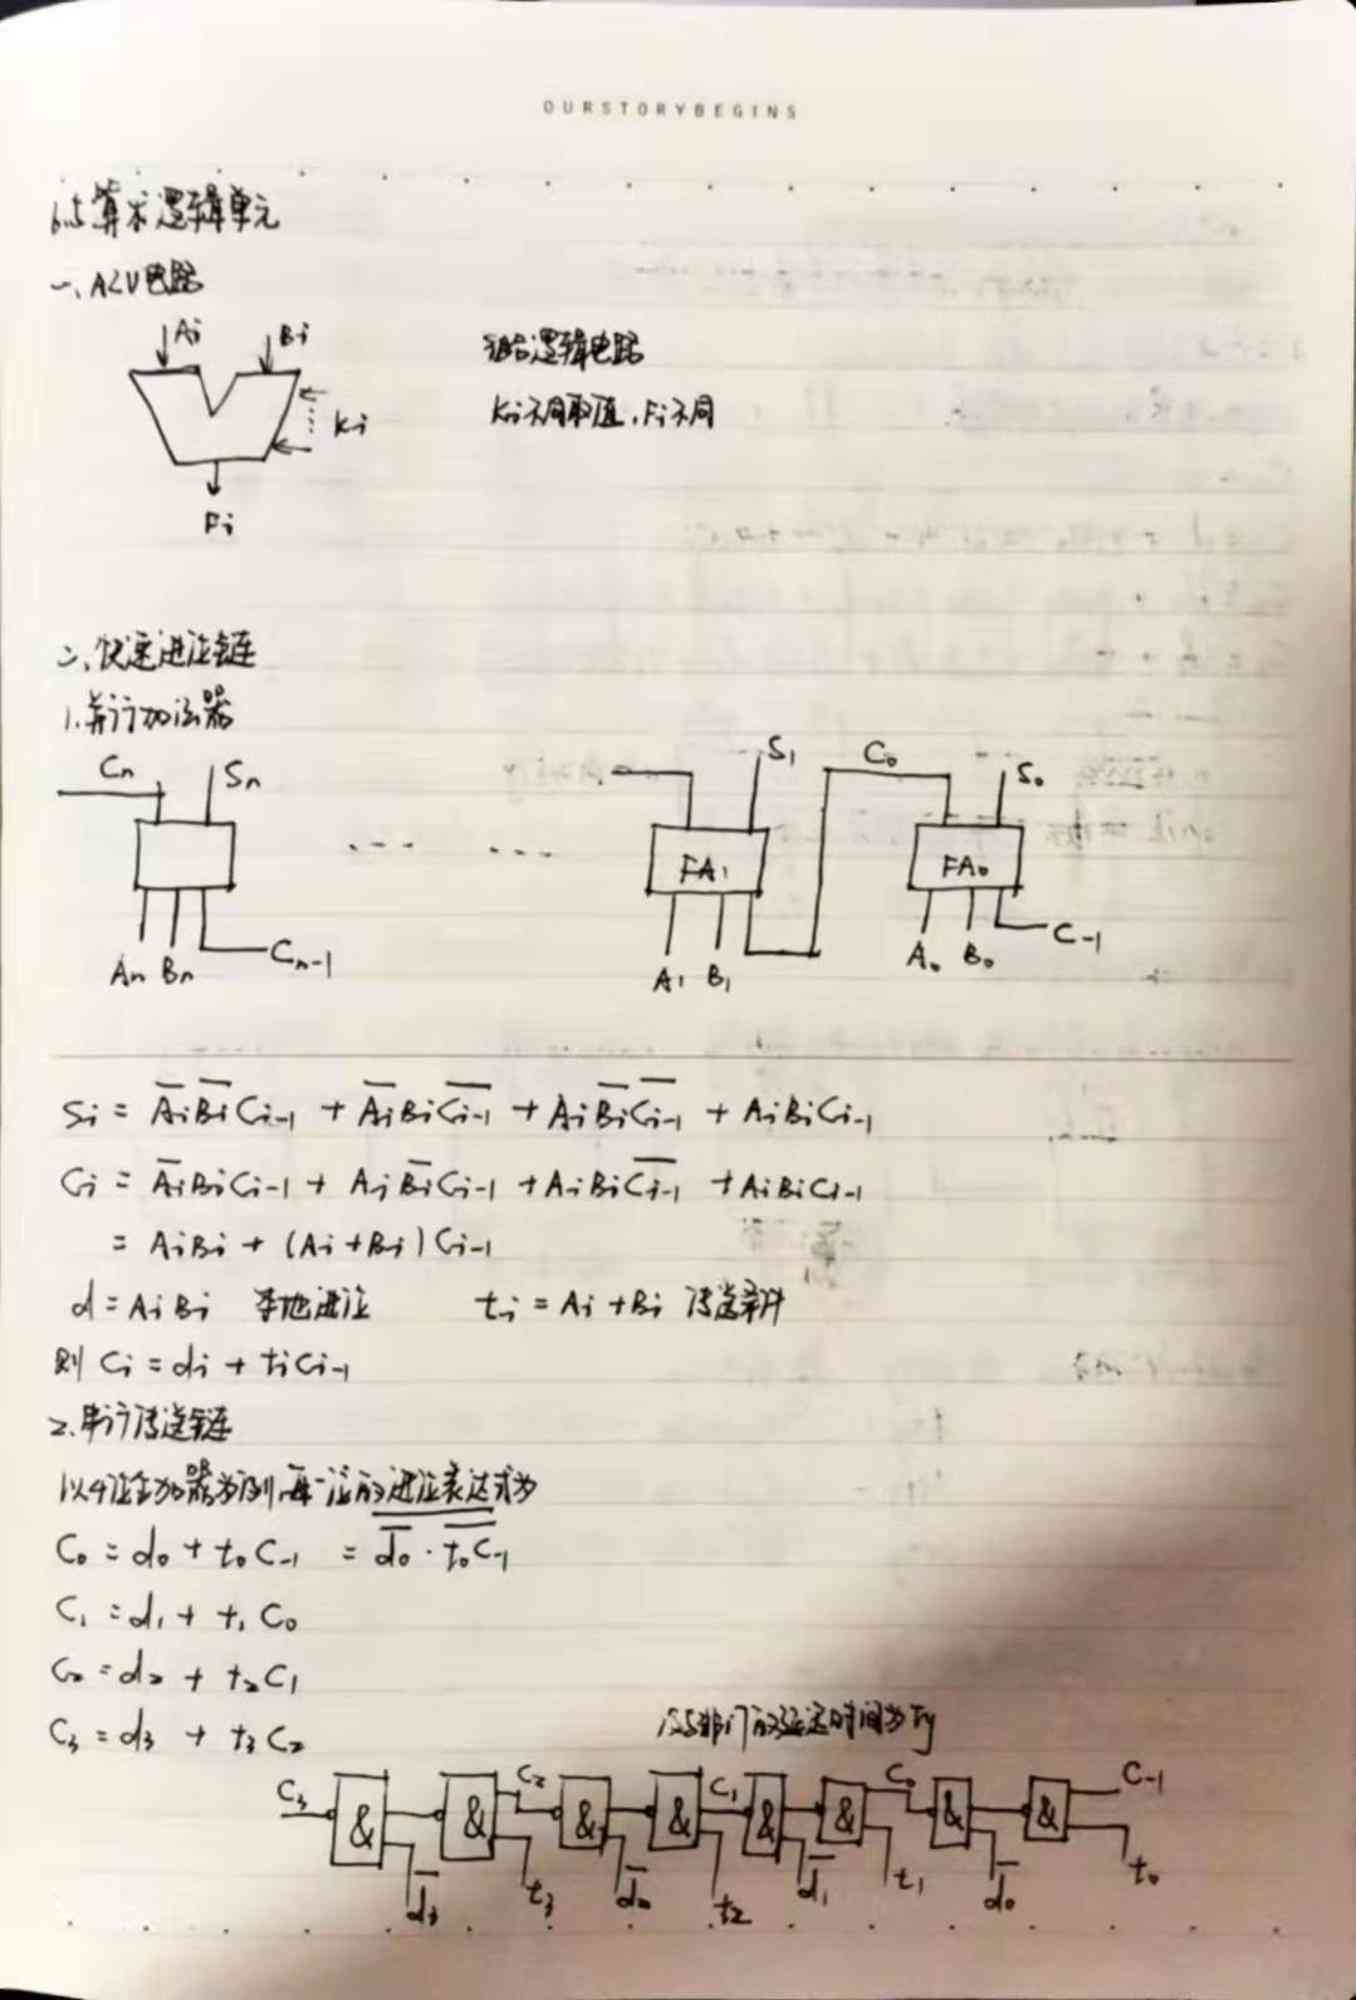 OURSTORYBEGINS
6.5算术逻辑单元
一、ALU电路
Ai Bi
组合逻辑电路
Ki不同取值,Fi不同
Ki
Fi
二、快速进位链
1.并行加法器
Cn Sn S1 C0 S0
... ... FA1 FA0
An Bn Cn-1 A1 B1 A0 B0 C-1
Si = A̅iB̅iCi-1 + A̅iBiC̅i-1 + AiB̅iC̅i-1 + AiBiCi-1
Ci = A̅iBiCi-1 + AiB̅iCi-1 + AiBiC̅i-1 + AiBiCi-1
= AiBi + (Ai+Bi)Ci-1
d = AiBi 本地进位 ti = Ai+Bi 传送条件
则 Ci = di + tiCi-1
2.串行传送链
以4位全加器为例,每一位的进位表达式为
C0 = d0 + t0C-1 = \overline{\overline{d0} · \overline{t0C-1}}
C1 = d1 + t1C0
C2 = d2 + t2C1
C3 = d3 + t3C2
设与非门的延迟时间为ty
C3 & & C2 & & C1 & & C0 & & C-1
d̅3 t3 d̅2 t2 d̅1 t1 d̅0 t0